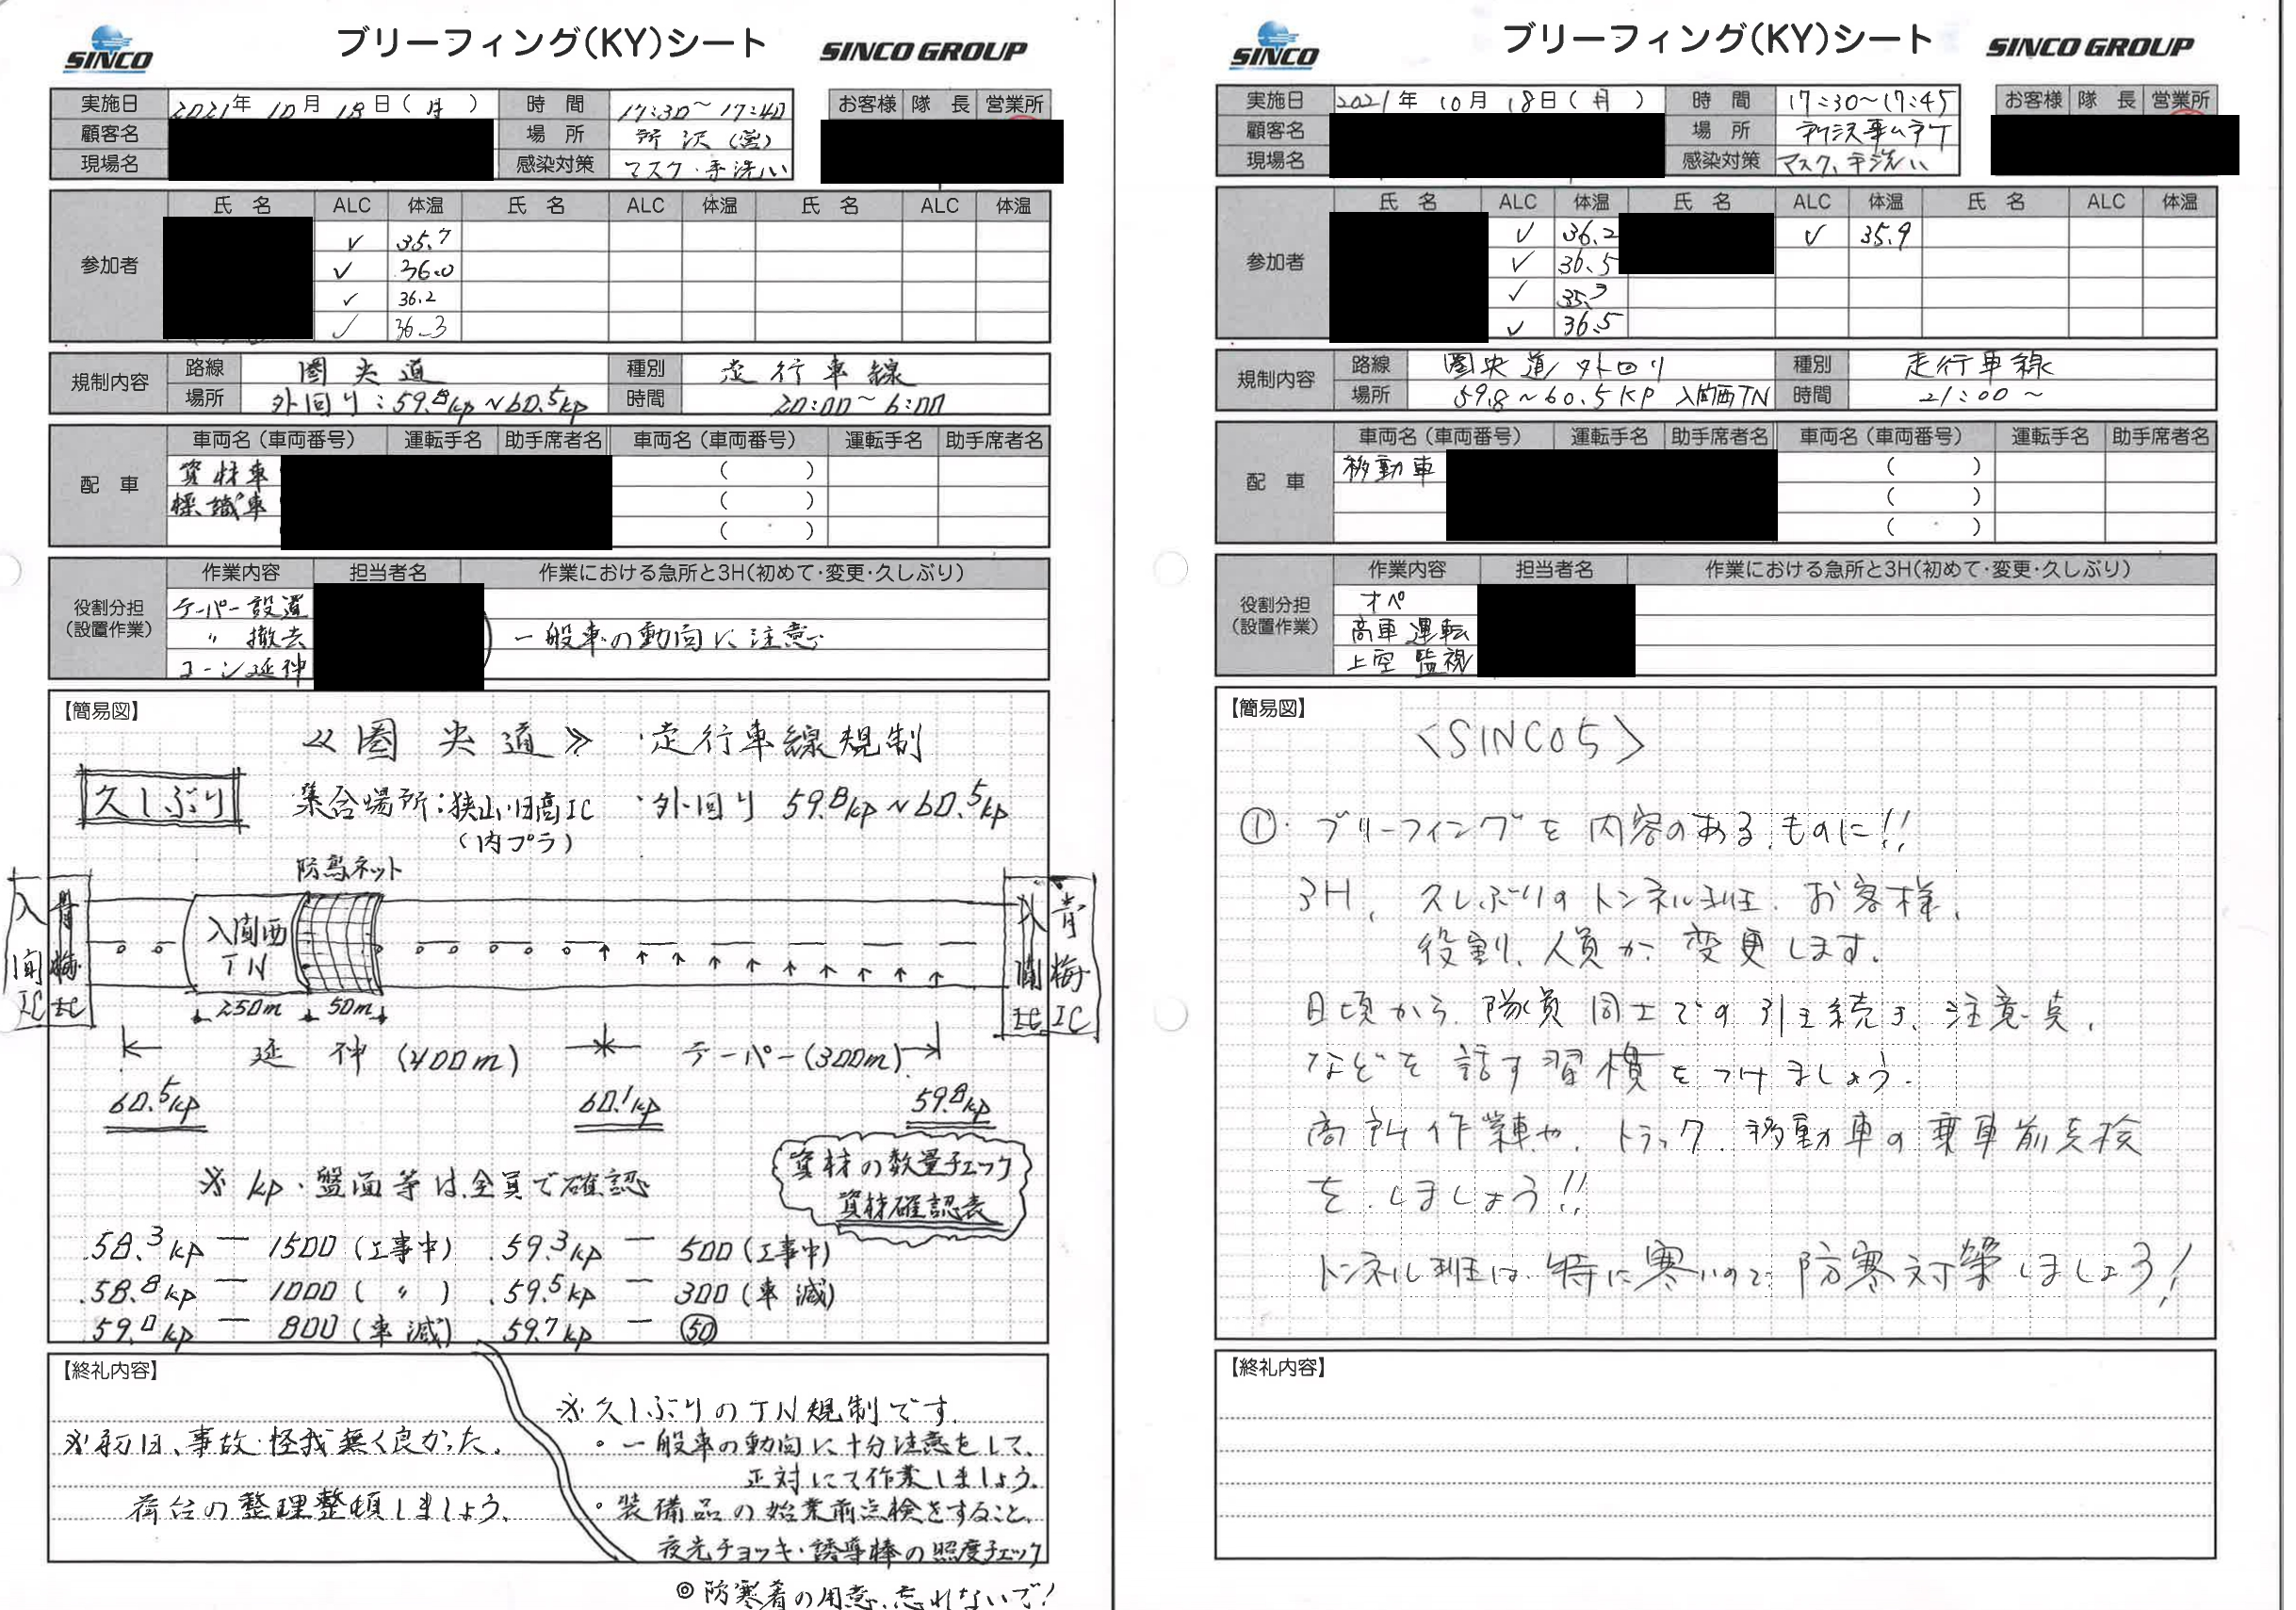 SINCO
ブリーフィング(KY)シート
SINCO GROUP
実施日 2021年 10月 18日(月) 時間 17:30~17:40 お客様 隊長 営業所
顧客名 場所 所沢(営)
現場名 感染対策 マスク・手洗い
参加者 氏名 ALC 体温 氏名 ALC 体温 氏名 ALC 体温
✓ 35.7
✓ 36.0
✓ 36.2
✓ 36.3
規制内容 路線 圏央道 種別 走行車線
場所 外回り:59.8kp~60.5kp 時間 20:00~6:00
配車 車両名(車両番号) 運転手名 助手席者名 車両名(車両番号) 運転手名 助手席者名
資材車 ( )
標識車 ( )
( )
役割分担(設置作業) 作業内容 担当者名 作業における急所と3H(初めて・変更・久しぶり)
テーパー設置
〃 撤去 一般車の動向に注意
コーン延伸
【簡易図】
≪圏央道≫ ・走行車線規制
久しぶり 集合場所:狭山日高IC ・外回り 59.8kp~60.5kp
(内プラ)
防鳥ネット
入間IC 青梅IC 入間西TN 入間IC 青梅IC
250m 50m
延伸(400m) テーパー(300m)
60.5kp 60.1kp 59.8kp
資材の数量チェック
資材確認表
※kp・盤面等は全員で確認
58.3kp ー 1500(工事中) 59.3kp ー 500(工事中)
58.8kp ー 1000( 〃 ) 59.5kp ー 300(車減)
59.0kp ー 800(車減) 59.7kp ー ㊿
【終礼内容】
※初日、事故・怪我無く良かった。
荷台の整理整頓しましょう。
※久しぶりのTN規制です。
・一般車の動向に十分注意をして、
正対にて作業しましょう。
・装備品の始業前点検をすること。
夜光チョッキ・誘導棒の照度チェック
◎防寒着の用意、忘れないで!
SINCO
ブリーフィング(KY)シート
SINCO GROUP
実施日 2021年 10月 18日(月) 時間 17:30~17:45 お客様 隊長 営業所
顧客名 場所 所沢事ム所
現場名 感染対策 マスク、手洗い
参加者 氏名 ALC 体温 氏名 ALC 体温 氏名 ALC 体温
✓ 36.2 ✓ 35.9
✓ 36.5
✓
✓ 36.5
規制内容 路線 圏央道/外回り 種別 走行車線
場所 59.8~60.5KP 入間西TN 時間 21:00~
配車 車両名(車両番号) 運転手名 助手席者名 車両名(車両番号) 運転手名 助手席者名
移動車 ( )
( )
( )
役割分担(設置作業) 作業内容 担当者名 作業における急所と3H(初めて・変更・久しぶり)
オペ
高車運転
上空監視
【簡易図】
<SINCO5>
①・ブリーフィングを内容のあるものに!!
3H、久しぶりのトンネル班、お客様、
役割、人員が変更します。
日頃から、隊員同士での引き続き、注意点、
などを話す習慣をつけましょう。
高所作業車や、トラック、移動車の乗車前点検
を、しましょう!!
トンネル班は、特に寒いので、防寒対策しましょう!
【終礼内容】